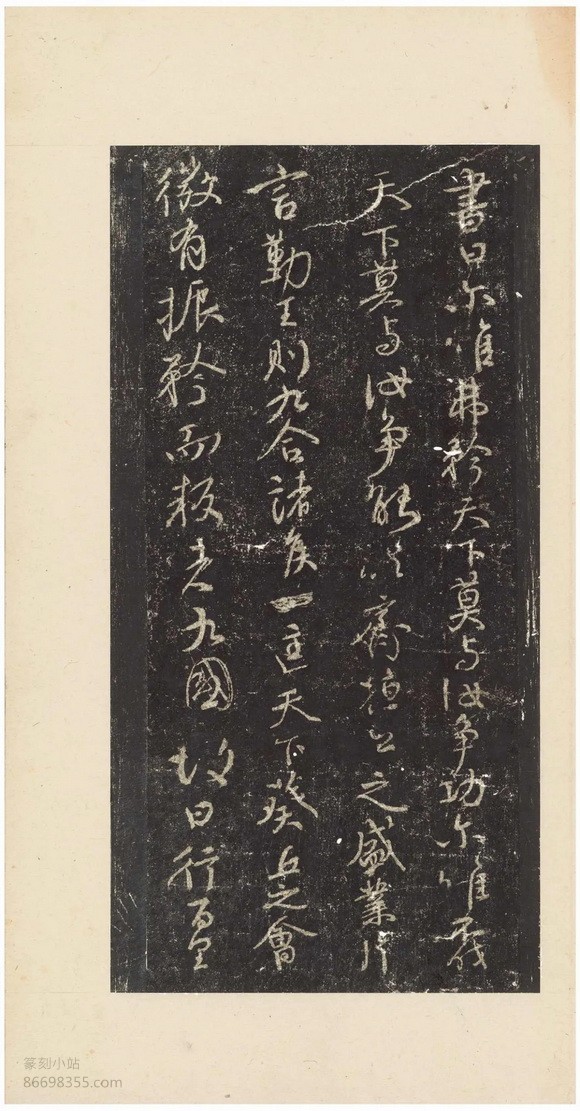 書曰尔唯弗矜天下莫与汝争功尔唯不伐
天下莫与汝争能以齊桓公之盛業片
言勤王則九合諸侯一匡天下葵丘之會
微有振矜而叛者九國故曰行百里
篆刻小站
86698355.com